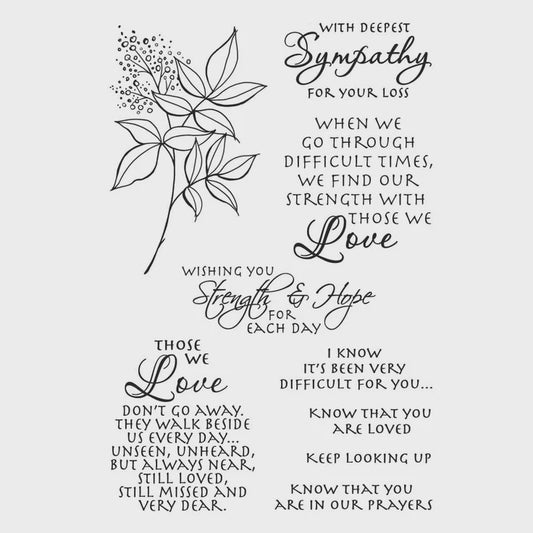 WITH DEEPEST
Sympathy
FOR YOUR LOSS
WHEN WE
GO THROUGH
DIFFICULT TIMES,
WE FIND OUR
STRENGTH WITH
THOSE WE
Love
WISHING YOU
Strength & Hope
FOR
EACH DAY
THOSE
WE
Love
DON'T GO AWAY.
THEY WALK BESIDE
US EVERY DAY...
UNSEEN, UNHEARD,
BUT ALWAYS NEAR,
STILL LOVED,
STILL MISSED AND
VERY DEAR.
I KNOW
IT'S BEEN VERY
DIFFICULT FOR YOU...
KNOW THAT YOU
ARE LOVED
KEEP LOOKING UP
KNOW THAT YOU
ARE IN OUR PRAYERS